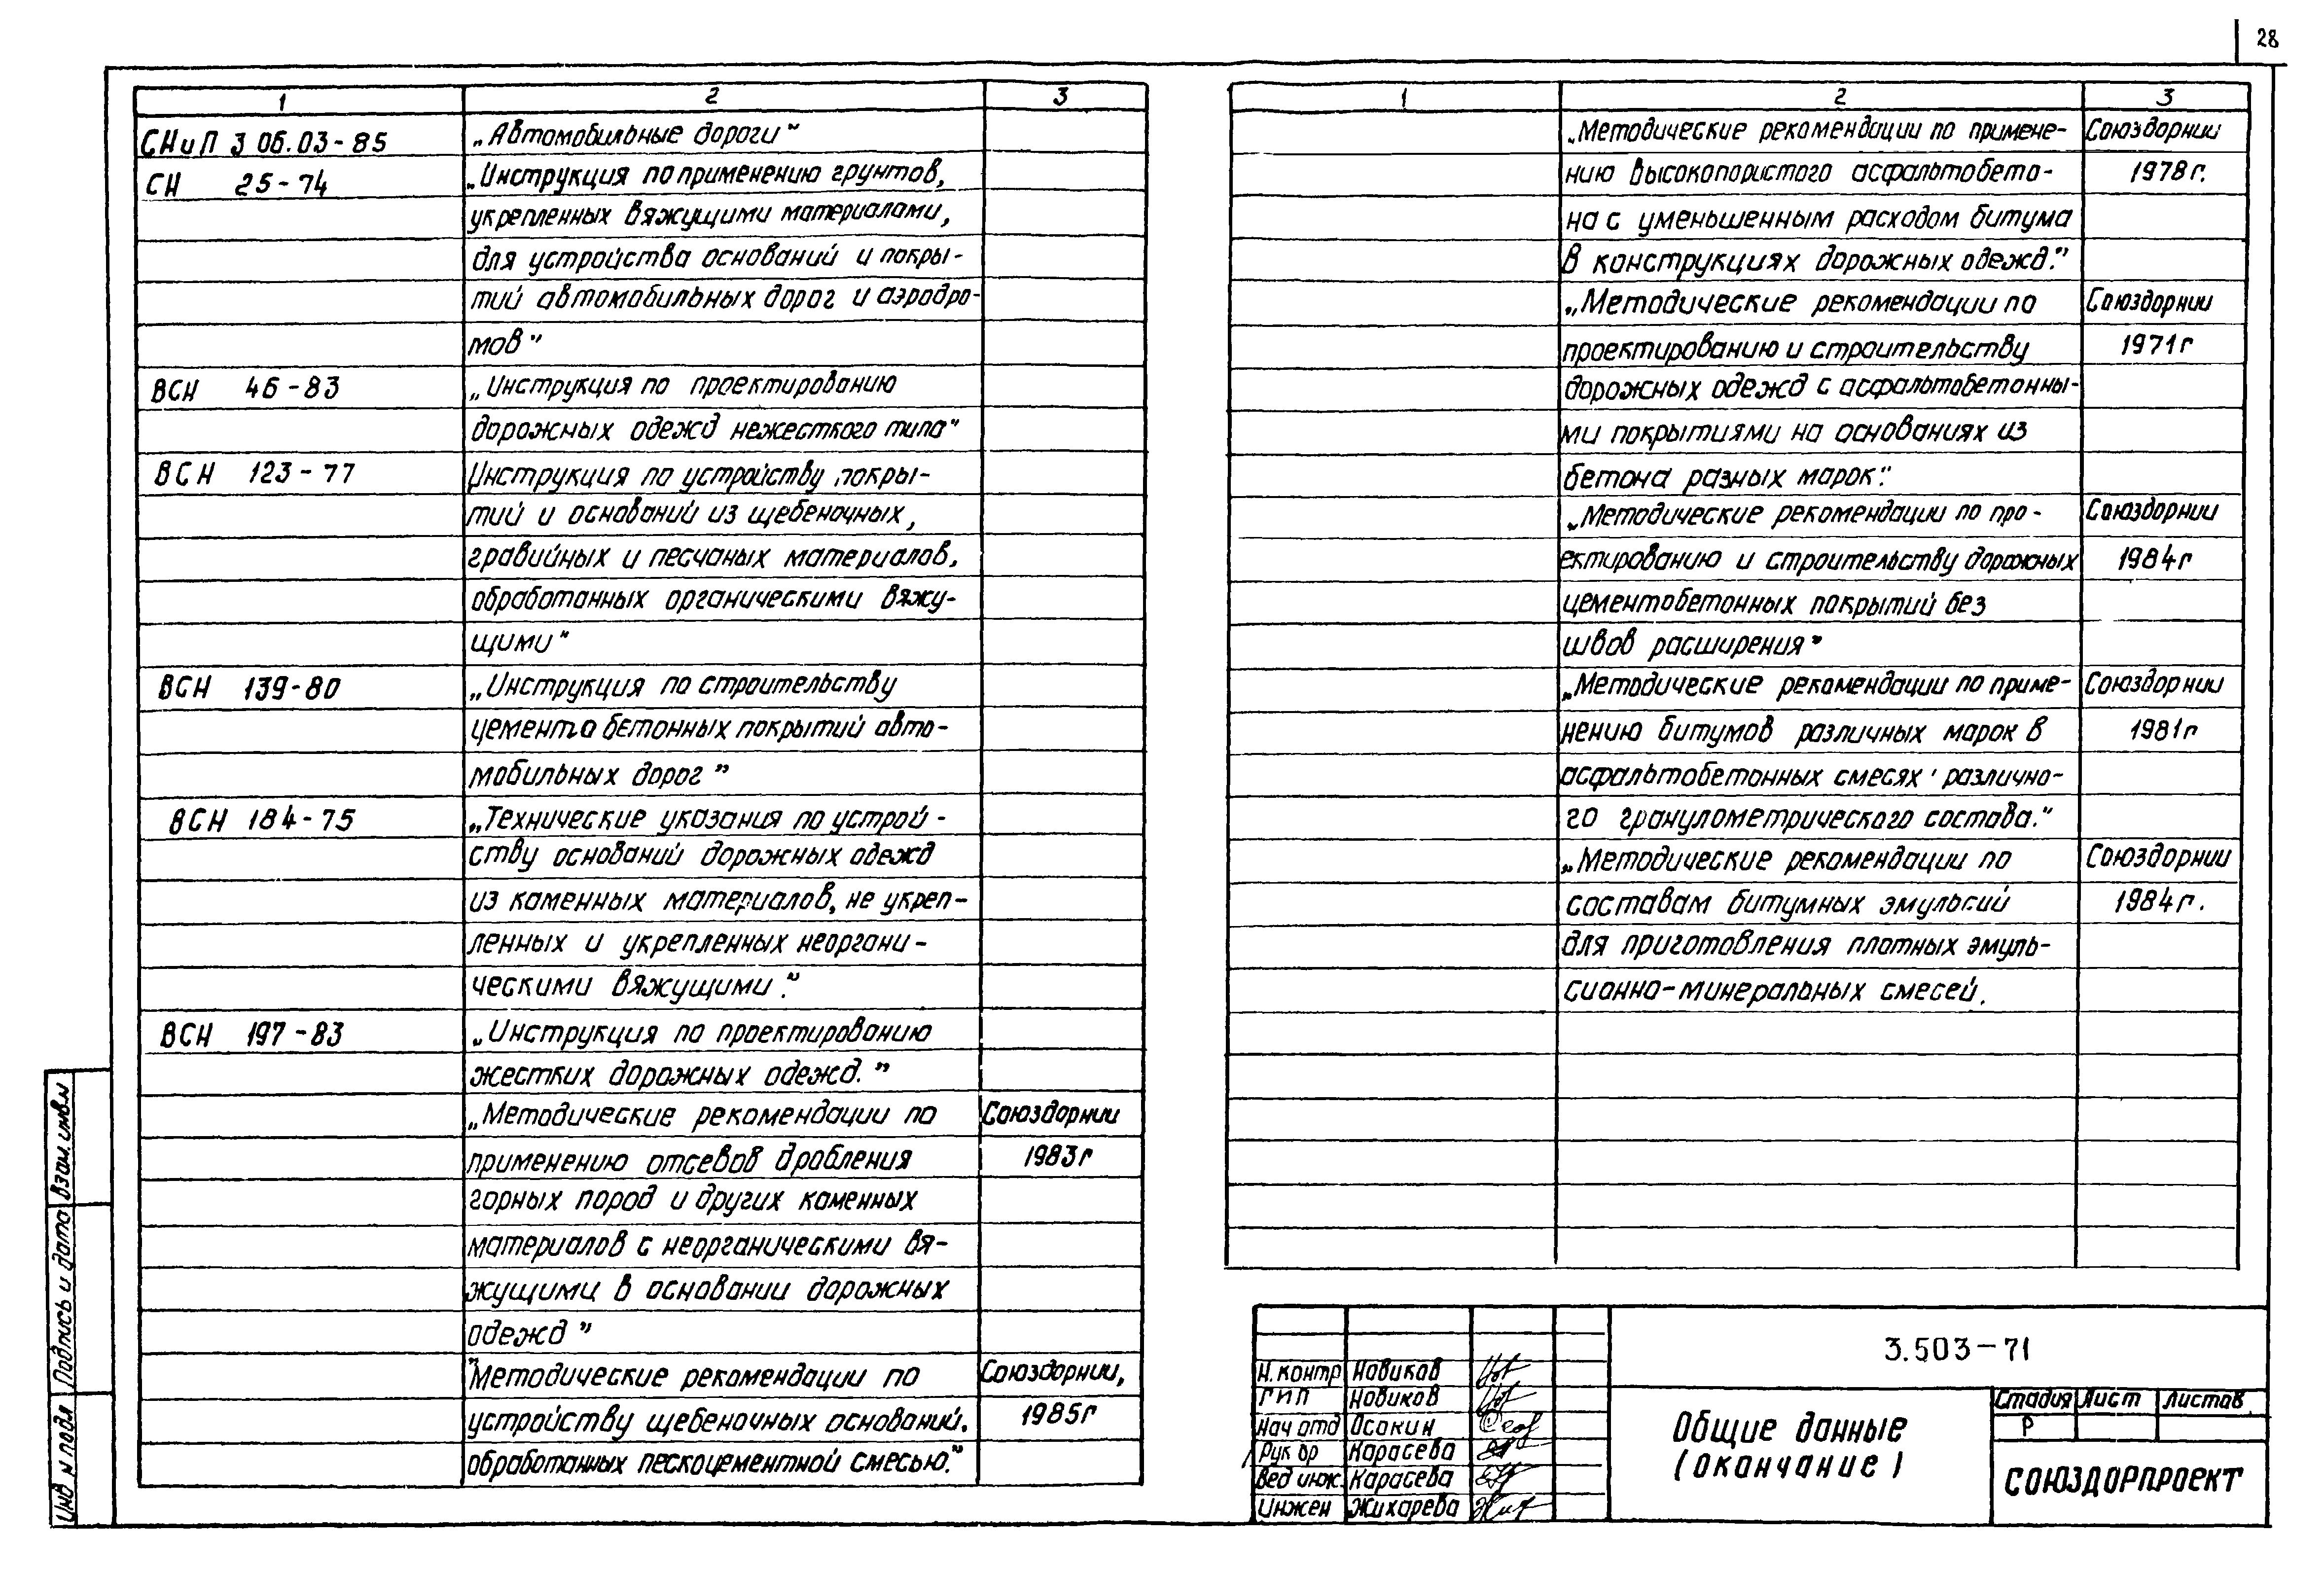 28
1 2 3
СНиП 3 06.03-85 „Автомобильные дороги"
СН 25-74 „Инструкция по применению грунтов,
укрепленных вяжущими материалами,
для устройства оснований и покры-
тий автомобильных дорог и аэродро-
мов"
ВСН 46-83 „Инструкция по проектированию
дорожных одежд нежесткого типа"
ВСН 123-77 Инструкция по устройству покры-
тий и оснований из щебеночных,
гравийных и песчаных материалов,
обработанных органическими вяжу-
щими"
ВСН 139-80 „Инструкция по строительству
цементо бетонных покрытий авто-
мобильных дорог"
ВСН 184-75 „Технические указания по устрой-
ству оснований дорожных одежд
из каменных материалов, не укреп-
ленных и укрепленных неоргани-
ческими вяжущими."
ВСН 197-83 „Инструкция по проектированию
жестких дорожных одежд."
„Методические рекомендации по Союздорнии
применению отсевов дробления 1983г
горных пород и других каменных
материалов с неорганическими вя-
жущими в основании дорожных
одежд"
"Методические рекомендации по Союздорнии,
устройству щебеночных оснований, 1985г
обработанных пескоцементной смесью."
1 2 3
„Методические рекомендации по примене- Союздорнии
нию высокопористого асфальтобето- 1978г.
на с уменьшенным расходом битума
в конструкциях дорожных одежд."
„Методические рекомендации по Союздорнии
проектированию и строительству 1971г
дорожных одежд с асфальтобетонны-
ми покрытиями на основаниях из
бетона разных марок".
„Методические рекомендации по про- Союздорнии
ектированию и строительству дорожных 1984г
цементобетонных покрытий без
швов расширения"
„Методические рекомендации по приме- Союздорнии
нению битумов различных марок в 1981г
асфальтобетонных смесях различно-
го гранулометрического состава."
„Методические рекомендации по Союздорнии
составам битумных эмульсий 1984г.
для приготовления плотных эмуль-
сионно-минеральных смесей.
Взам. инв.н
Подпись и дата
Инв н подл
3.503-71
Н.контр Новиков
ГИП Новиков
Нач отд Осокин
Рук бр Карасева
Вед инж. Карасева
Инжен Жихарева
Общие данные
(окончание)
Стадия Лист Листов
Р
СОЮЗДОРПРОЕКТ